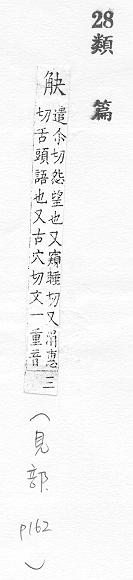 28
類篇
觖遣尒切怨望也又窺睡切又涓惠
切舌頭語也又古穴切文一重音三
(見部 p162)